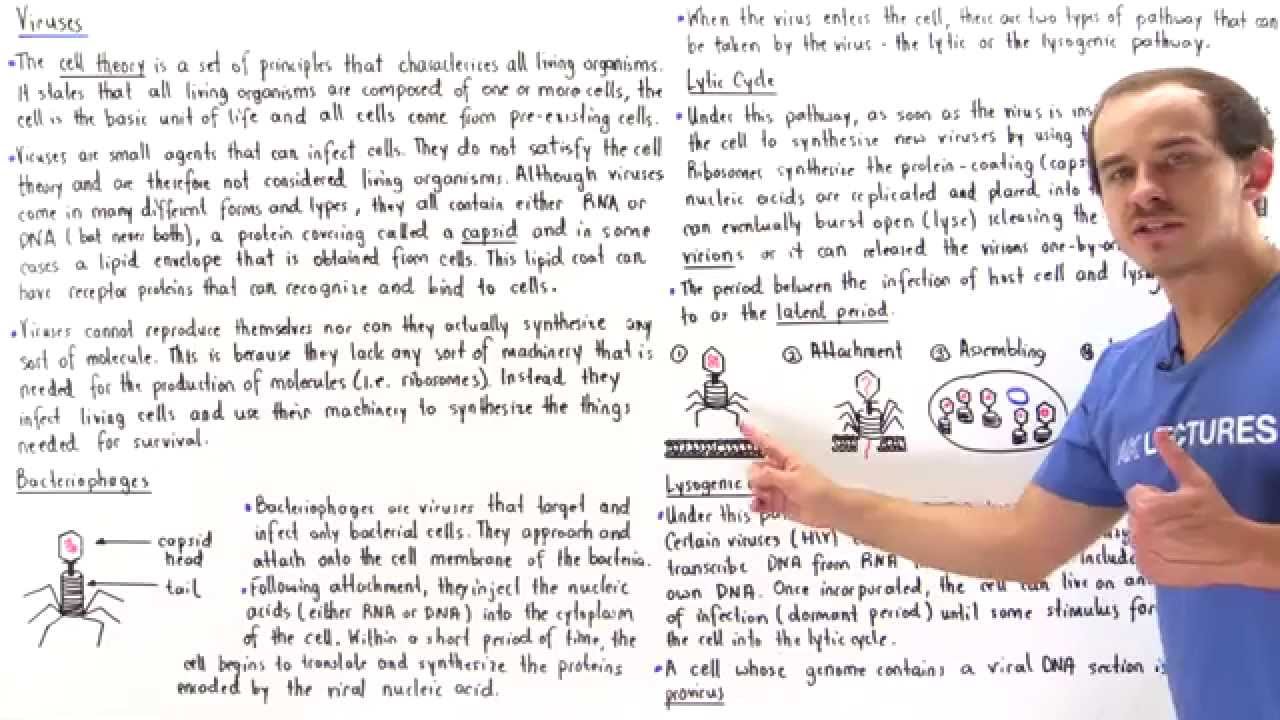 Viruses
• The cell theory is a set of principles that characterizes all living organisms.
It states that all living organisms are composed of one or more cells, the
cell is the basic unit of life and all cells come from pre-existing cells.
• Viruses are small agents that can infect cells. They do not satisfy the cell
theory and are therefore not considered living organisms. Although viruses
come in many different forms and types, they all contain either RNA or
DNA (but never both), a protein covering called a capsid and in some
cases a lipid envelope that is obtained from cells. This lipid coat can
have receptor proteins that can recognize and bind to cells.
• Viruses cannot reproduce themselves nor can they actually synthesize any
sort of molecule. This is because they lack any sort of machinery that is
needed for the production of molecules (i.e. ribosomes). Instead they
infect living cells and use their machinery to synthesize the things
needed for survival.
Bacteriophages
capsid
head
tail
• Bacteriophages are viruses that target and
infect only bacterial cells. They approach and
attach onto the cell membrane of the bacteria.
• Following attachment, they inject the nucleic
acids (either RNA or DNA) into the cytoplasm
of the cell. Within a short period of time, the
cell begins to translate and synthesize the proteins
encoded by the viral nucleic acid.
• When the virus enters the cell, there are two types of pathway that can
be taken by the virus - the lytic or the lysogenic pathway.
Lytic Cycle
• Under this pathway, as soon as the virus is
the cell to synthesize new viruses by using
Ribosomes synthesize the protein-coating
nucleic acids are replicated and placed into
can eventually burst open (lyse) releasing the
virions or it can released the virions one-by-
• The period between the infection of host cell and
to as the latent period.
①
② Attachment
③ Assembling
Lysogenic
• Under this
Certain viruses (HIV)
transcribe DNA from RNA include
own DNA. Once incorporated, the cell can live on
of infection (dormant period) until some stimulus
the cell into the lytic cycle.
• A cell whose genome contains a viral DNA section is
provirus
AK LECTURES